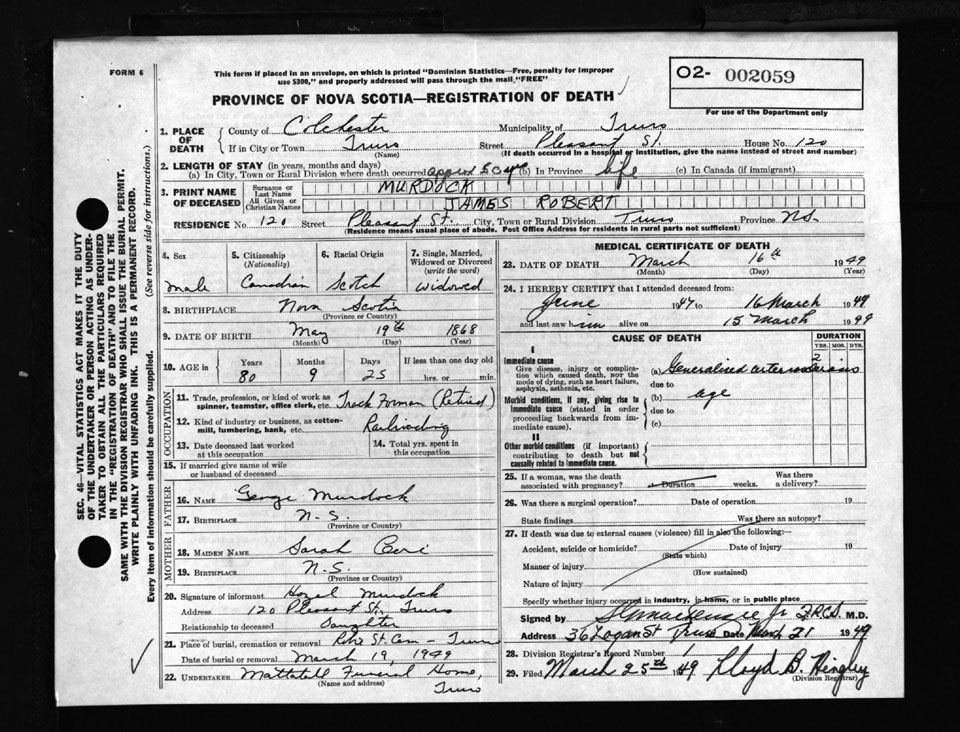 FORM 6
This form if placed in an envelope, on which is printed "Dominion Statistics—Free, penalty for improper
use $300," and properly addressed will pass through the mail "FREE"
O2- 002059
For use of the Department only
PROVINCE OF NOVA SCOTIA—REGISTRATION OF DEATH
1. PLACE OF DEATH
County of Colchester Municipality of Truro
If in City or Town Truro Street Pleasant St. House No. 120
(Name) (If death occurred in a hospital or institution, give the name instead of street and number)
2. LENGTH OF STAY (in years, months and days)
(a) In City, Town or Rural Division where death occurred approx 50 yrs (b) In Province life (c) In Canada (if immigrant)
3. PRINT NAME OF DECEASED
Surname or Last Name MURDOCK
All Given or Christian Names JAMES ROBERT
RESIDENCE No. 120 Street Pleasant St. City, Town or Rural Division Truro Province N.S.
(Residence means usual place of abode. Post Office Address for residents in rural parts not sufficient)
4. Sex
male
5. Citizenship (Nationality)
Canadian
6. Racial Origin
Scotch
7. Single, Married, Widowed or Divorced (write the word)
widowed
8. BIRTHPLACE Nova Scotia
(Province or Country)
9. DATE OF BIRTH May 19th 1868
(Month) (Day) (Year)
10. AGE in Years Months Days If less than one day old
80 9 25 hrs. or min.
OCCUPATION
11. Trade, profession, or kind of work as
spinner, teamster, office clerk, etc. Track Forman (Retired)
12. Kind of industry or business, as cotton-
mill, lumbering, bank, etc. Railroading
13. Date deceased last worked
at this occupation
14. Total yrs. spent in
this occupation
15. If married give name of wife
or husband of deceased
FATHER
16. NAME George Murdock
17. BIRTHPLACE N.S.
(Province or Country)
MOTHER
18. MAIDEN NAME Sarah
19. BIRTHPLACE N.S.
(Province or Country)
20. Signature of informant Hazel Murdock
Address 120 Pleasant St. Truro
Relationship to deceased Daughter
21. Place of burial, cremation or removal St. Cem - Truro
Date of burial or removal March 19, 1949
22. UNDERTAKER Mattatall Funeral Home,
(Name and address) Truro
MEDICAL CERTIFICATE OF DEATH
23. DATE OF DEATH March 16th 1949
(Month) (Day) (Year)
24. I HEREBY CERTIFY that I attended deceased from:
June 1947 to 16 March 1949
and last saw him alive on 15 March 1949
CAUSE OF DEATH
DURATION
YRS. MOS. DYS.
I
Immediate cause
Give disease, injury or complica-
tion which caused death, NOT the
mode of dying, such as heart failure,
asphyxia, asthenia, etc.
(a) Generalised arteriosclerosis 2
due to
Morbid conditions, if any, giving rise to
immediate cause (stated in order
proceeding backwards from im-
mediate cause).
(b) age
due to
(c)
II
Other morbid conditions (if important)
contributing to death but not
causally related to immediate cause.
25. If a woman, was the death
associated with pregnancy? Duration weeks. Was there
a delivery?
26. Was there a surgical operation? Date of operation 19
State findings Was there an autopsy?
27. If death was due to external causes (violence) fill in also the following:
Accident, suicide or homicide? Date of injury 19
(State which)
Manner of injury
(How sustained)
Nature of injury
Specify whether injury occurred in industry, in home, or in public place
Signed by MacKenzie Jr F.R.C.S. M.D.
Address 36 Logan St Truro Date March 21 1949
28. Division Registrar's Record Number 1
29. Filed March 25th 1949 Lloyd B. Hingley
(Division Registrar)
SEC. 46—VITAL STATISTICS ACT MAKES IT THE DUTY
OF THE UNDERTAKER OR PERSON ACTING AS UNDER-
TAKER TO OBTAIN ALL THE PARTICULARS REQUIRED
IN THE "REGISTRATION OF DEATH" AND TO FILE THE
SAME WITH THE DIVISION REGISTRAR WHO SHALL ISSUE THE BURIAL PERMIT.
WRITE PLAINLY WITH UNFADING INK. THIS IS A PERMANENT RECORD.
Every item of information should be carefully supplied. (See reverse side for instructions.)